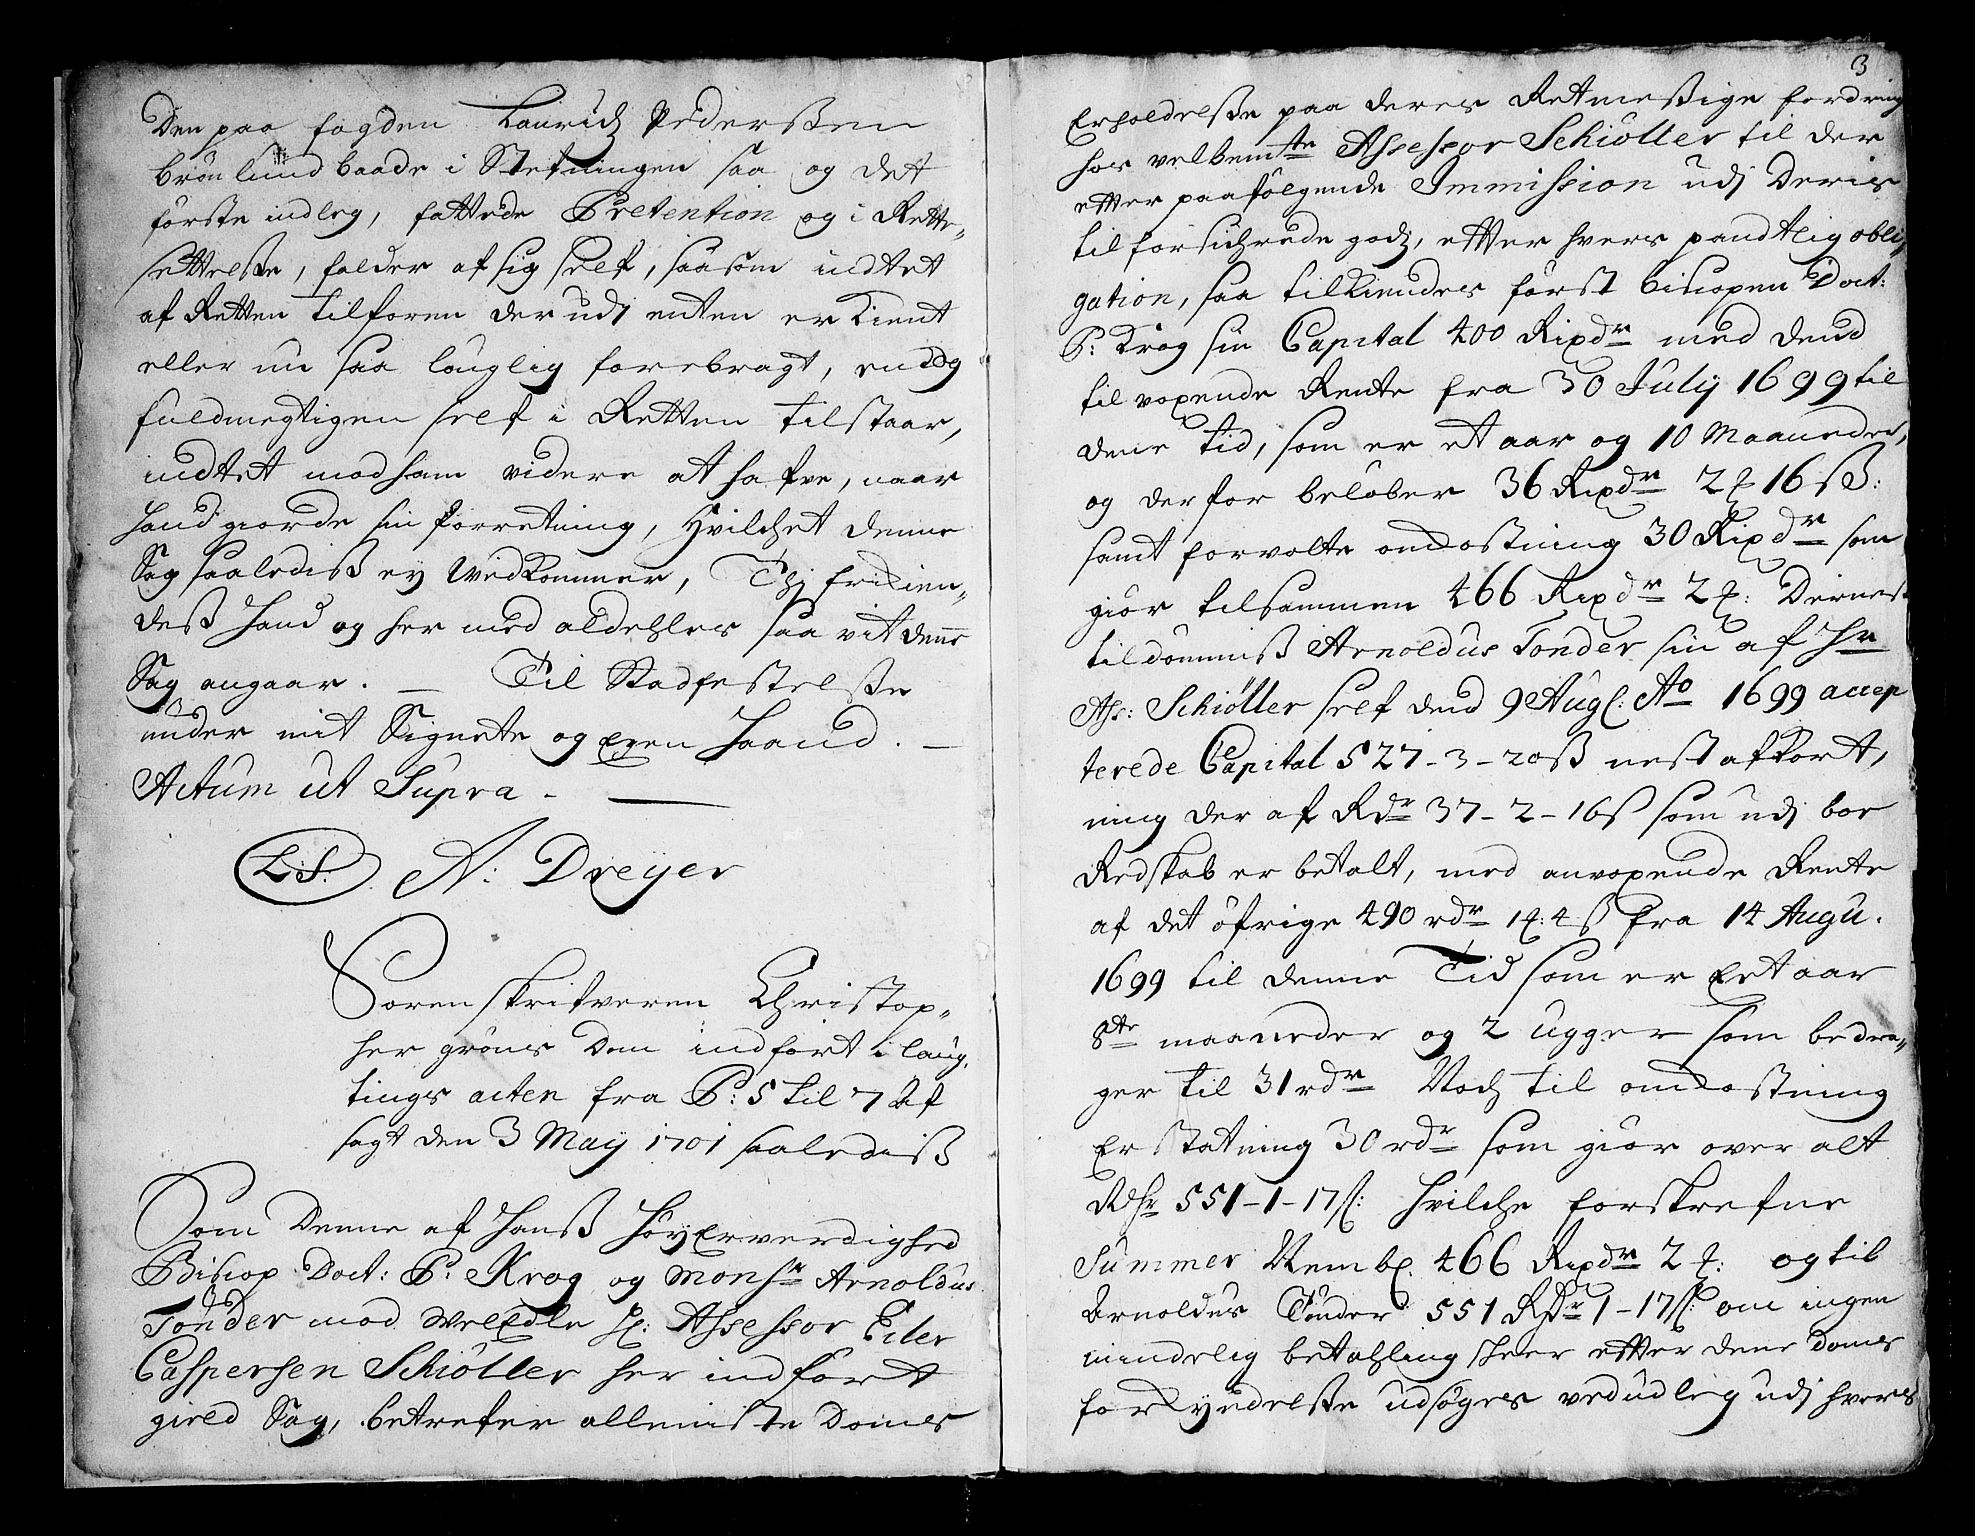 Den paa fogden Lauridz Pederssen
brönlund baade i Stefningen saa og det
förste indleg, fattede Pretention og i Rette„
settelsse, falder af sig self, saasom indtet
af Retten tilforen der udj enten er kient
eller nu saa louglig forebragt, endog
fuldmegtigen self i Retten tilstaar,
indtet mod ham videre at hafve, naar
hand giorde sin forretning, Hvilchet denne
Sag saalediss ej Vedkommer, Thj frikien„
dess hand og her med aldehles saa vit denne
Sag angaar. — Til Stadfestelsse
under mit Signete og Egen Haand. —
Actum ut Supra. —
L.S. A: Dreyer
Sorenskrifveren Christop„
her gröns Dom indfört i laug„
tings acten fra P: 5 til 7 Af
sagt den 3 Maij 1701 saalediss
Som Denne af Hanss HöyErverdighed
Biscop Doct: P: Krog og Monsr Arnoldus
Tönder mod WelEdle Hr: Assessor Eiler
Caspersen Schiöller her indfört
gield Sag, betrefer alleniste Doms
3
Erholdelsse paa deres Retmessige fordring
hos velbemte Assessor Schiöller til der
etter paafölgende Immission udj Deris
til forsichrede godz, etter hvers pandtlig obli„
gation, saa tilkiendes först biscopen Doct:
P: Krog sin Capital 400 Rixdr med dend
til voxende Rente fra 30 Julij 1699 til
dene tid, som er et aar og 10 Maaneder,
og derfor belöber 36 Rixdr 2 ₰ 16 ss:
samt forvolte omkostning 30 Rixdr som
giör tilsammen 466 Rixdr 2 ₰: Dernest
tildömmiss Arnoldus Tonder sin af Hr
Ass: Schiöller self dend 9 Aug: Ao 1699 accep
terede Capital 527-3-20ss nest afkort,
ning der af Rdr 37-2-16s som udj bor
Redskab er betalt, med anvoxende Rente
af det öfrige 490 rdr 1₰: 4 s fra 14 Augu.
1699 til denne Tid som er Eet aar
8te maaneder og 2 ugger som bedra„
ger til 31 rdr Noch til omkostning
Erstatning 30 rdr som giör over alt
Rdr 551-1-17s: hvilche forskrefne
Summer Nembl. 466 Rixdr 2 ₰: og til
Arnoldus Tönder 551 Rdr 1-17s: om ingen
mindelig betahling skeer etter dene doms
forkyndelsse udsöges ved udleg udj hvers